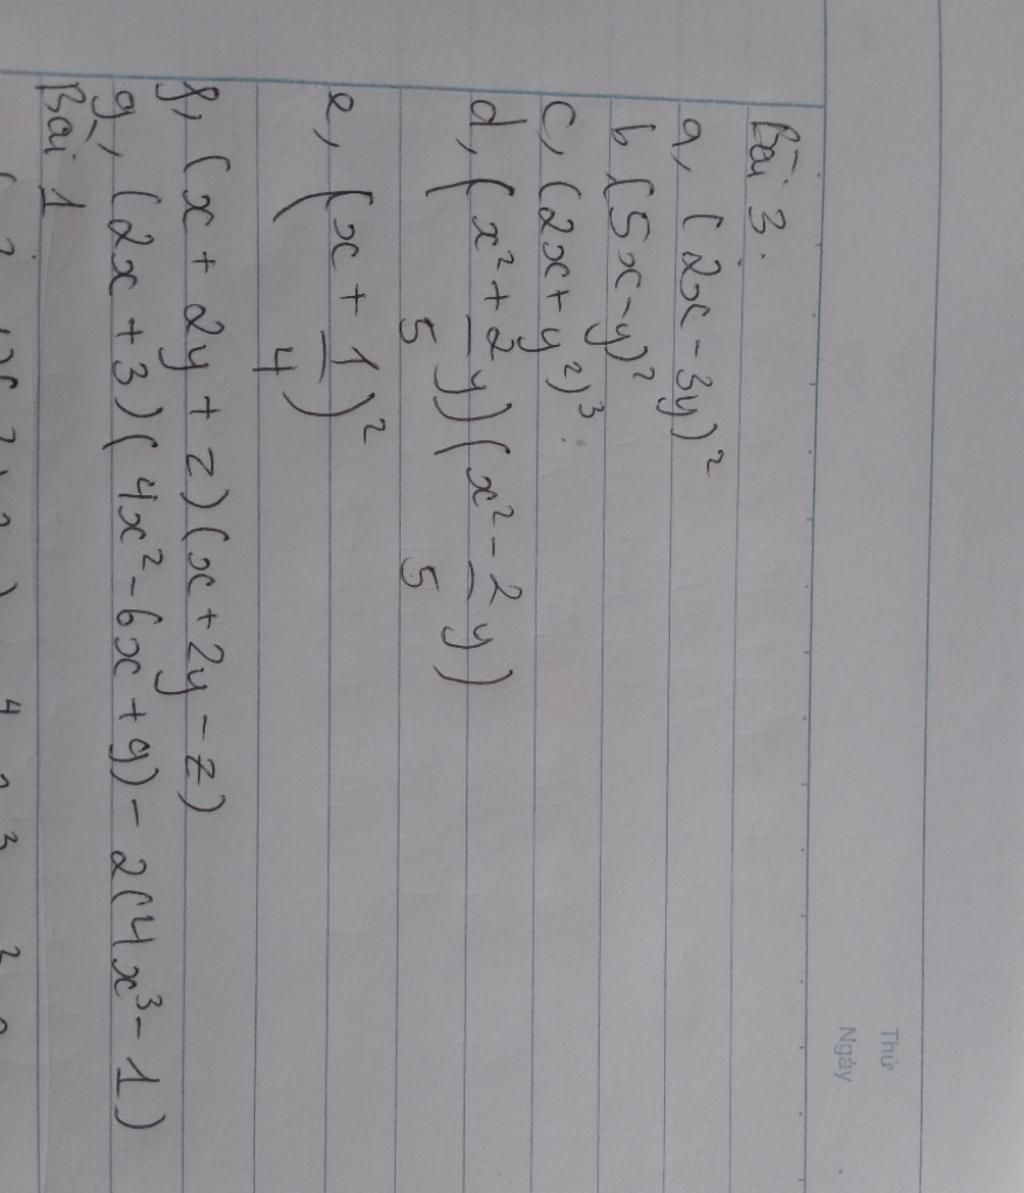 Thứ
Ngày
Bài 3.
a, (2x - 3y)²
b (5x - y)²
c, (2x + y²)³
d, (x² + 2/5 y)(x² - 2/5 y)
e, (x + 1/4)²
f, (x + 2y + z)(x + 2y - z)
g, (2x + 3)(4x² - 6x + 9) - 2(4x³ - 1)
Bài 1